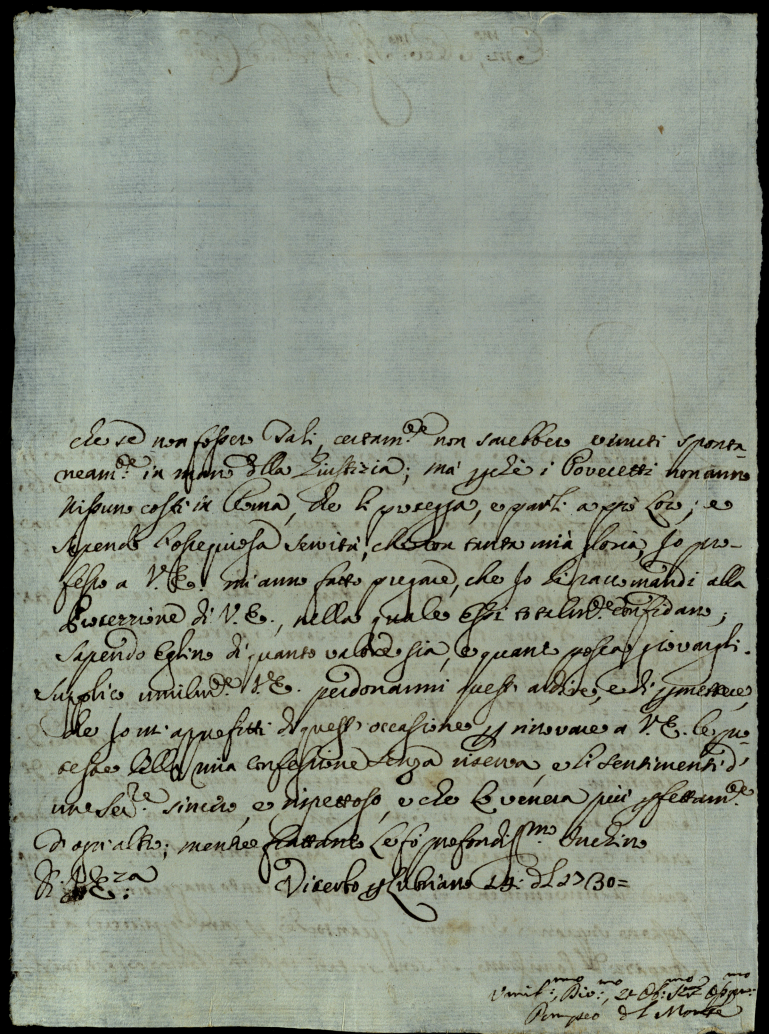 che se non fossero tali, certam.te non sarebbero venuti sponta-
neam.te in man della Giustizia; mà perchè i Poveretti non anno
Nissuno costì in Roma, che li protegga, e parli a prò Loro; e
sapendo l'ossequiosa servitù, che con tanta mia gloria Io pro-
fesso a V.E. mi anno fatto pregare, che Io li raccomandi alla
Protezzione di V.E., nella quale Essi totalm.te confidano;
sapendo Eglino di quanto valore sia, e quanto possa giovargli.
Supplico umilm.te V.E. perdonarmi questo ardire, e di permettere,
che Io mi approfitti di quest'occasione per rinovare a V.E. le pro-
teste della mia confessione senza riserva, e li sentimenti d'
un Ser.re sincero, e rispettoso, e che La venera più perfettam.te
d'ogni altro; mentre frattanto Le fò profondiss.mo inchino
Di V.E.za Viterbo 14: del 1730=
Umil.mo, Div.mo, et Obl.mo Ser.re Ossequi.mo
Pompeo del Monte